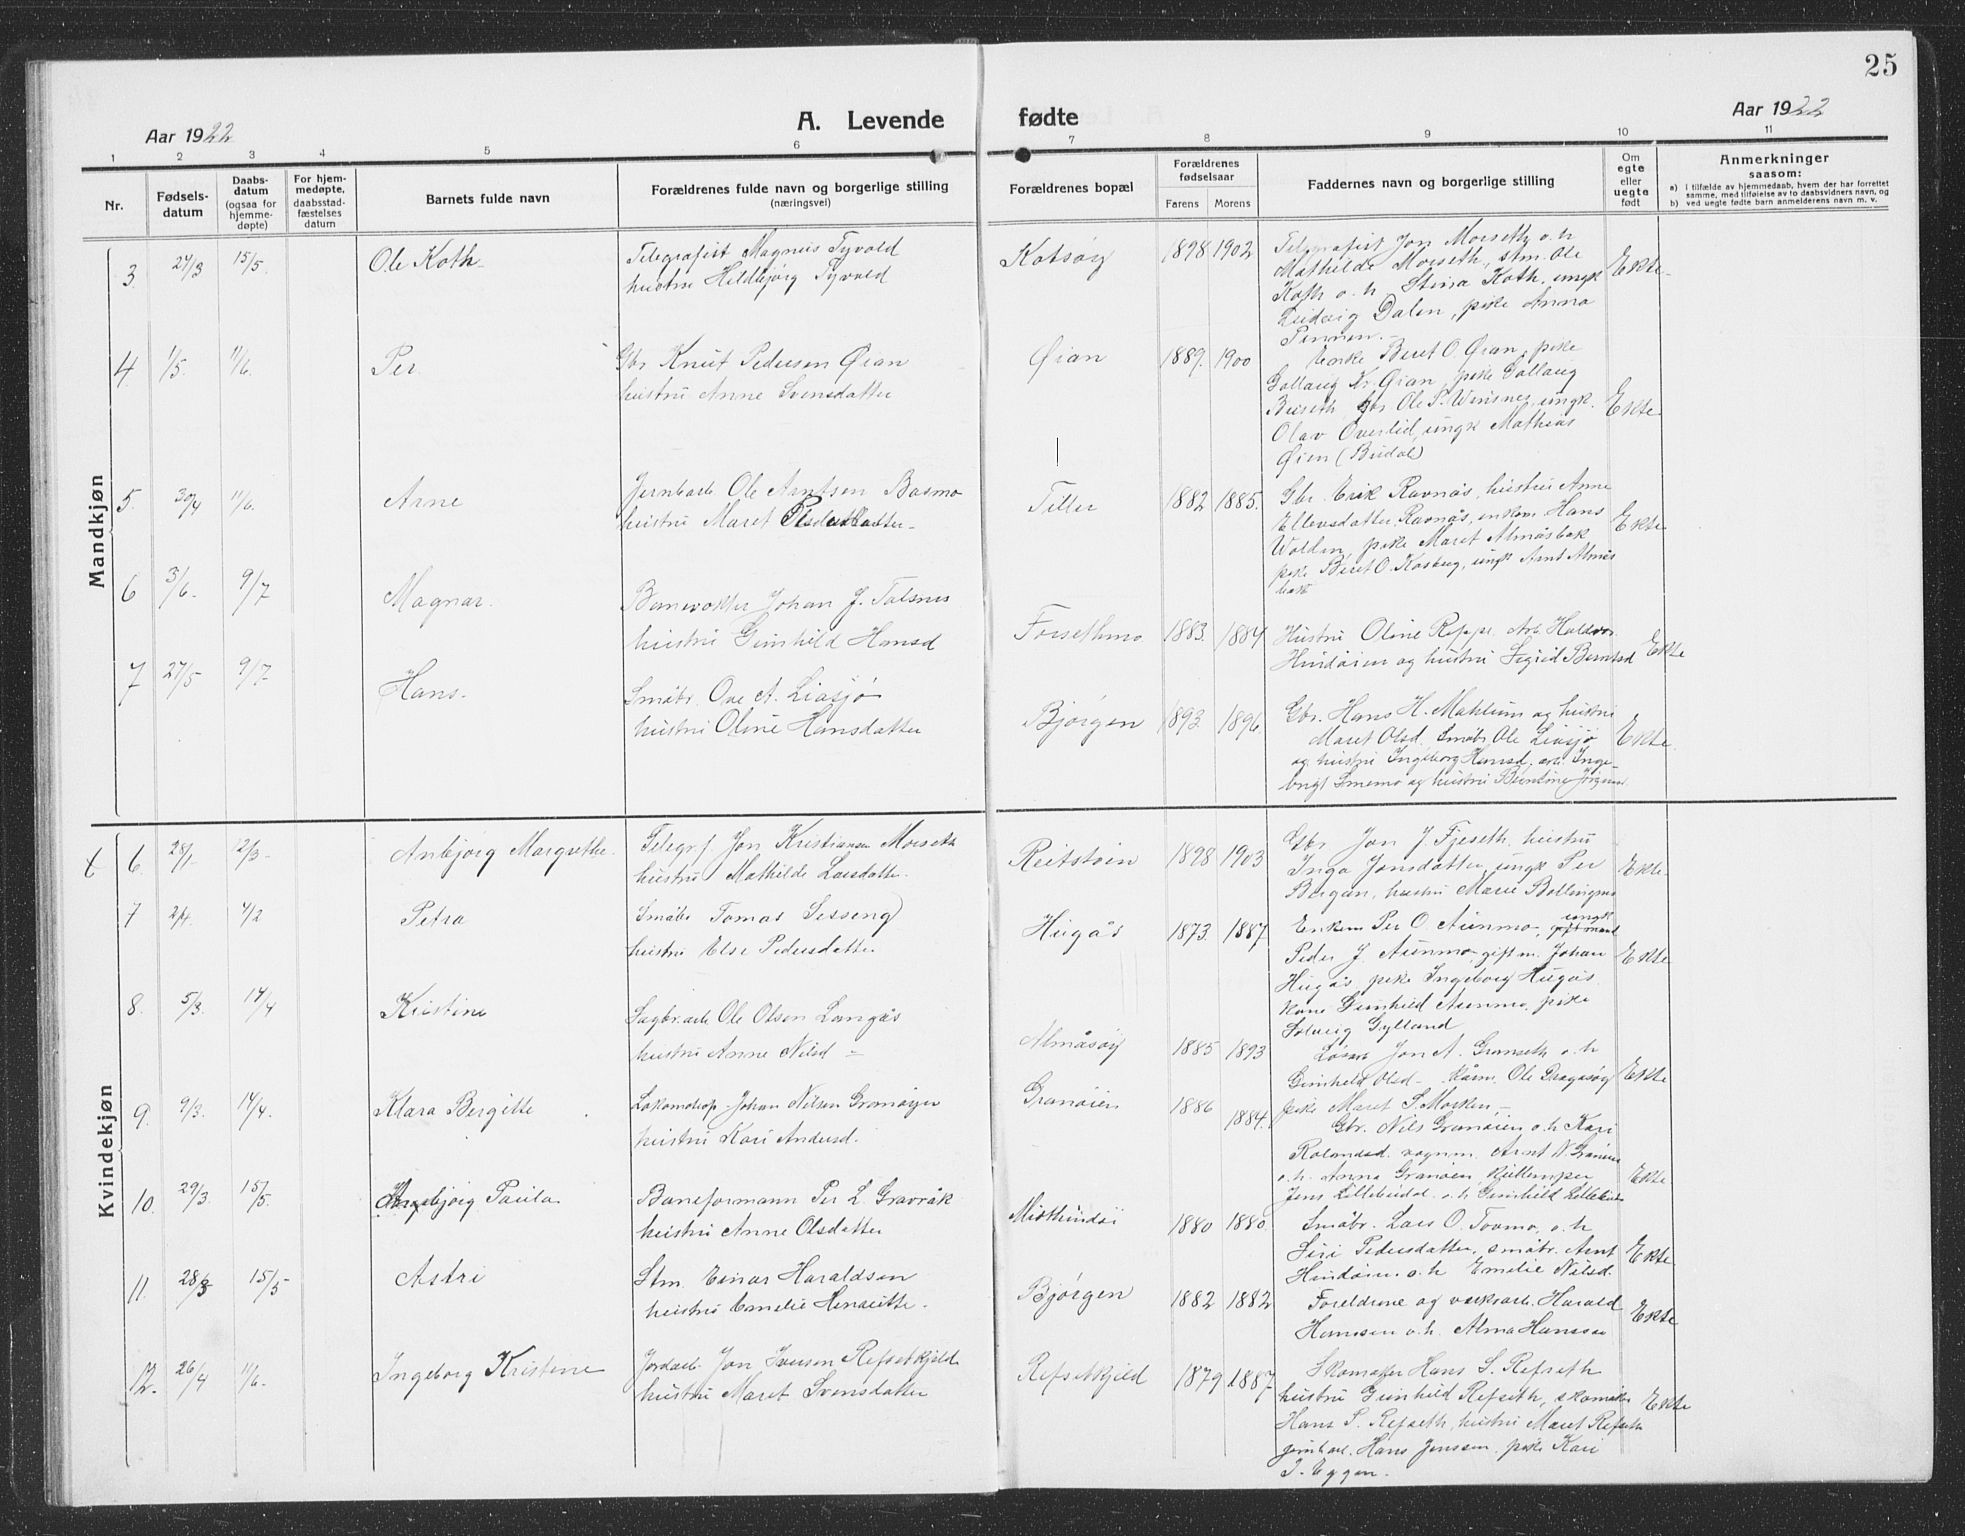 25
Aar 1922
A. Levende fødte
Aar 1922
1 2 3 4 5 6 7 8 9 10 11
Nr.
Fødsels-
datum
Daabs-
datum
(ogsaa for
hjemme-
døpte)
For hjem-
medøpte,
daabsstad-
fæstelses
datum
Barnets fulde navn
Forældrenes fulde navn og borgerlige stilling
(næringsvei)
Forældrenes bopæl
Forældrenes
fødselsaar
Farens Morens
Faddernes navn og borgerlige stilling
Om
egte
eller
uegte
født
Anmerkninger
saasom:
a) i tilfælde av hjemmedaab, hvem der har forrettet
samme, med tilføielse av to daabsvidners navn, og
b) ved uegte fødte barn anmelderens navn m. v.
Mandkjøn
3 24/3 15/5. Ole Koth
Telegrafist Magnus Tyvold
hustru Hildbjørg Tyvold
Kotsøy 1898 1902
Telegrafist Jon Morseth o. h
Mathilde Morseth, stm. Ole
Koth o. h. Stina Koth, ungk
Ludvig Dalen, pike Anna
Ekte
4 1/5. 11/6. Per
Gbr Knut Pedersen Øian
hustru Anne Svensdatter
Øian 1889. 1900
Enke Beret O. Øian, pike
Gollaug Kr. Øian, pike Gollaug
gbr Ole P. ungk.
Olav Øverlid, ungk Mathias
Øien (Budal)
Ekte
5. 30/4 11/6. Arne
Jernbarb. Ole Arntsen Basmo
hustru Maret Pedersdatter
Tiller 1882 1885.
Gbr. Erik Ravnås, hustru Anne
Ellevsdatter Ravnås, enkem Hans
Wolden, pike Maret Almåsbak
pike Beret O. ungk Arnt Almås
bak
Ekte
6 3/6. 9/7 Magnar.
Banevokter Johan J. Talsnes
hustru Gunhild Hansd
Forsethmo 1883. 1884
Hustru Oline Arb. Haldor
Hindøien og hustru Sigrid Berntsd
Ekte
7 27/5 9/7 Hans.
Småbr. Ove A. Liasjø
hustru Oline Hansdatter
Bjørgen 1893. 1896.
Gbr. Hans H. Mahlum og hustru
Maret Olsd. Småbr Ole Liasjø
og hustru Ingeborg Hansd. arb. Inge-
brigt og hustru
Ekte.
Kvindekjøn
6. 28/1. 12/3. Anbjørg Margrethe.
Telegrf. Jon Kristiansen Morseth
hustru Mathilde Larsdatter.
Reitstøin 1898 1903
Gbr Jon J. Fjeseth, hustru
Inga Jonsdatter, ungk Per
Bergan, hustru Marie
Ekte.
7 Petra
Småbr Tomas Sesseng
hustru Else Pedersdatter
Hugås 1873. 1887
Enkem Per O. Aunmo, ungk
Peder J. Aunmo, gift m. Johan
Hugås, pike Ingeborg Hugås.
kone Gunhild Aunmo, pike
Solveig Gylland
Ekte
8. 5/3. 17/4 Kristine
Sagbr.arb Ole Olsen Langås
hustru Anne Nilsd
Almåsøy 1885 1893
Jon A. Granseth o. h
Gunhild Olsd Ole Dragsøy
pike Maret S. Morken
Ekte
9. 9/3. 17/4. Klara Bergitte
Lokomotop. Johan Nilsen Granøyen
hustru Kari Andersd.
Granøien 1886 1884.
Gbr. Nils Granøien o. h Kari
Rolandsd. vognm. Arnt N. Granøien
o. h. Anna Granøien,
Jens Lillebudal o. h Gunhild
Ekte
10. 29/3. 15/5. Paula
Baneformann Per L. Gravråk
hustru Anne Olsdatter
1880 1880.
Småbr. Lars O. Tovmo, o. h
Siri Pedersdatter, småbr. Arnt
Hindøien o. h Emelie Nilsd.
Ekte
11. 28/3 15/5 Astri
Stm. Einar Haraldsen
hustru Emelie Henriette.
Bjørgen 1882 1882
Foreldrene og verksarb. Harald
Hansen o. h. Alma Hansen
Ekte
12. 26/4 11/6. Ingeborg Kristine
Jordarb. Jon Iversen Refsetkjeld
hustru Maret Svensdatter
Refsetkjeld 1879 1887.
Skomaker Hans S. Refseth
hustru Gunhild Refseth, skomaker
Hans P. Refseth, hustru Maret Refseth
jernbarb. Hans Jenssen, pike Kari
J. Eggen.
Ekte